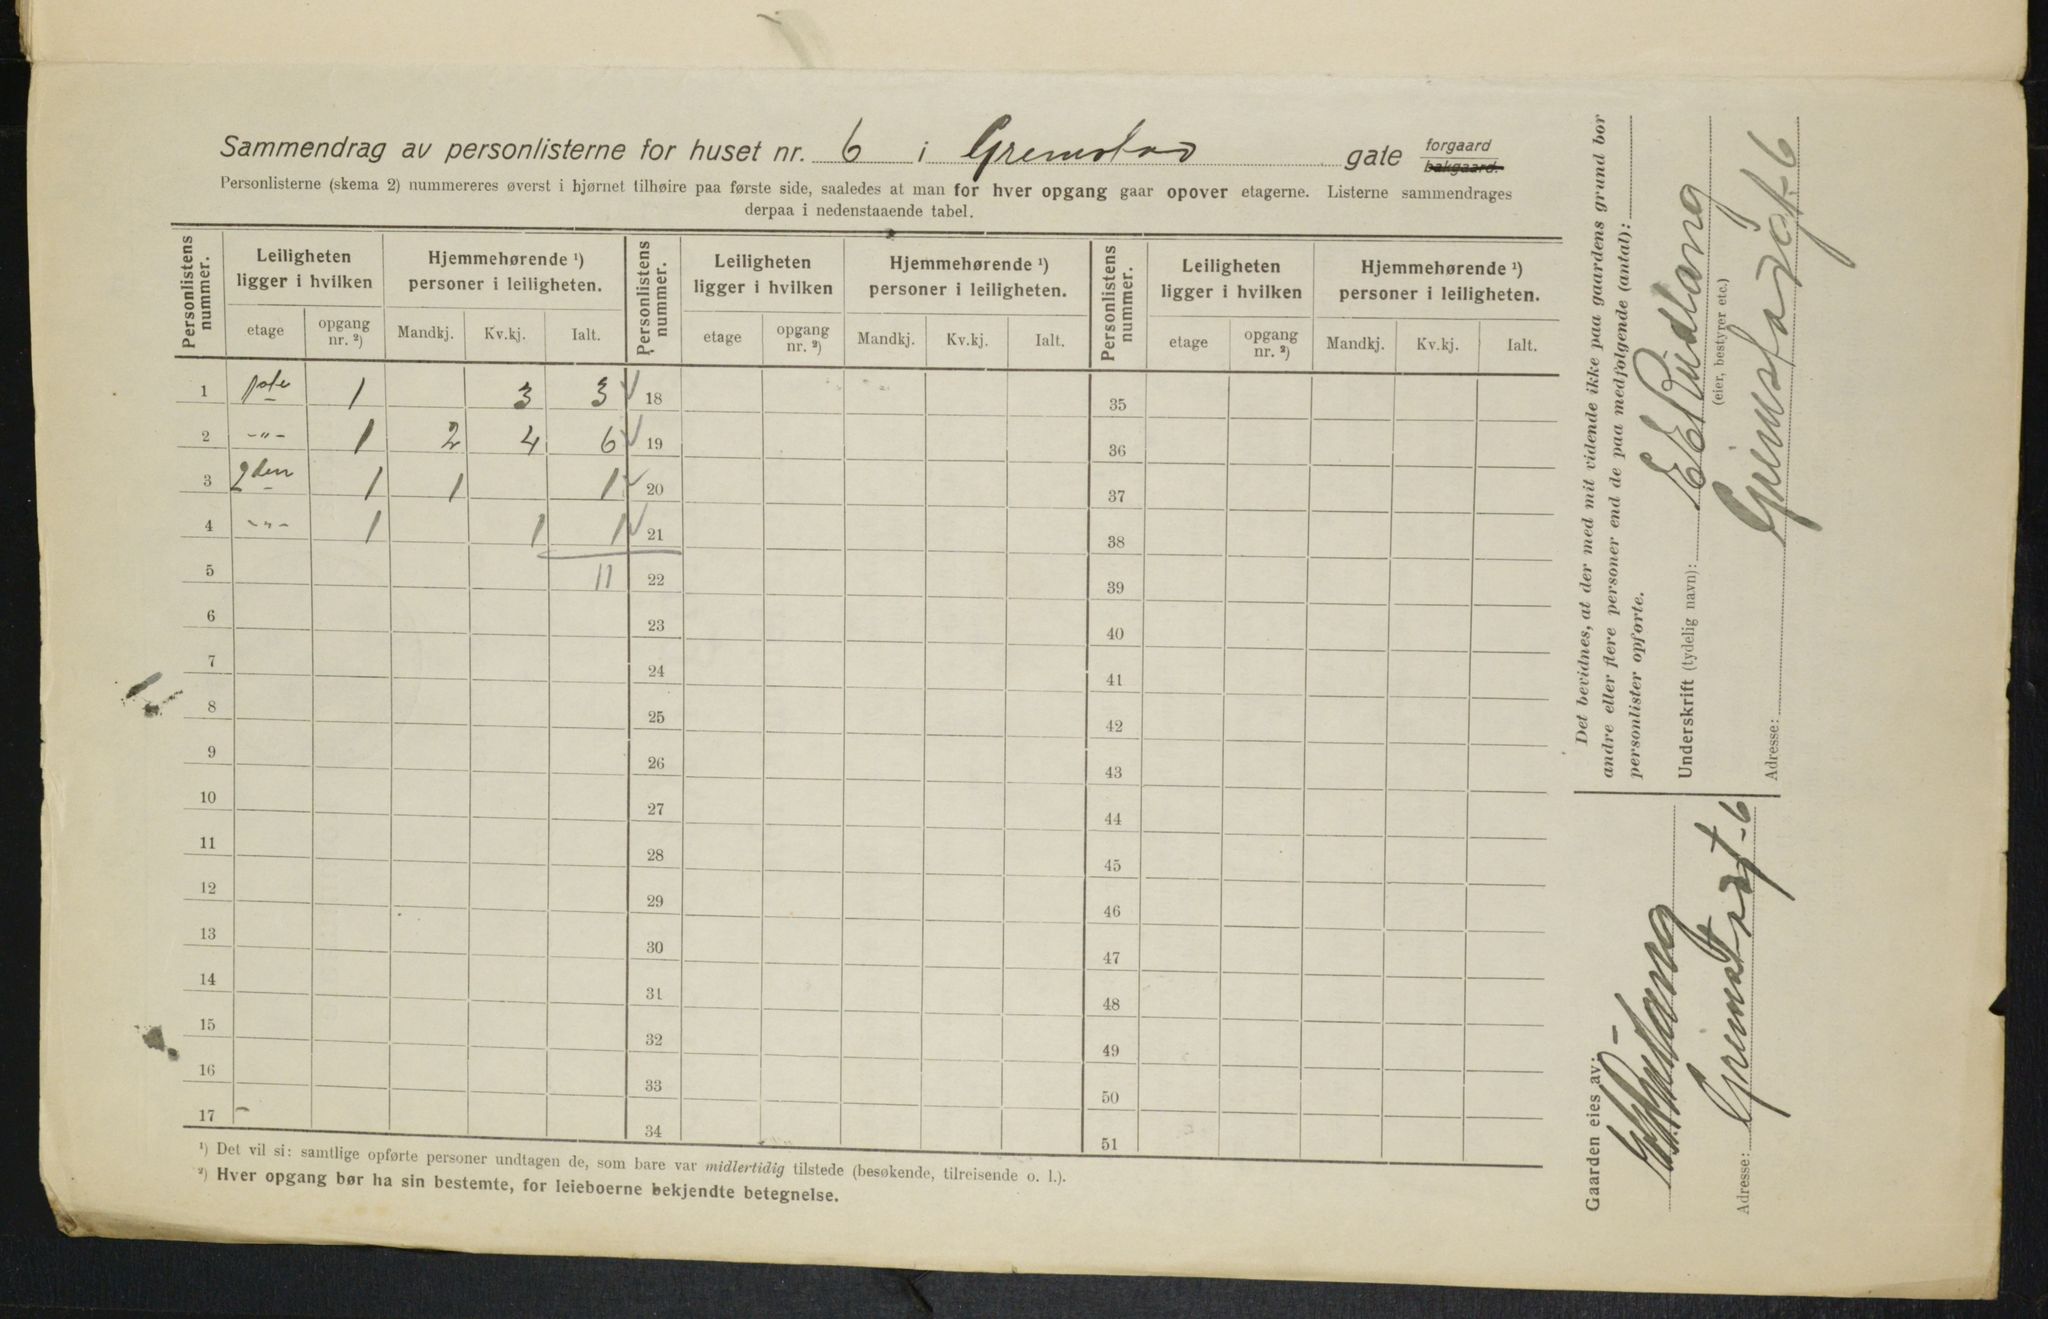 Sammendrag av personlisterne for huset nr. 6 i Grimstad gate forgaard bakgaard.
Personlisterne (skema 2) nummereres øverst i hjørnet tilhøire paa første side, saaledes at man for hver opgang gaar opover etagerne. Listerne sammendrages
derpaa i nedenstaaende tabel.
Personlistens nummer. Leiligheten ligger i hvilken Hjemmehørende ¹) personer i leiligheten. Personlistens nummer. Leiligheten ligger i hvilken Hjemmehørende ¹) personer i leiligheten. Personlistens nummer. Leiligheten ligger i hvilken Hjemmehørende ¹) personer i leiligheten.
etage opgang nr. ²) Mandkj. Kv.kj. Ialt. etage opgang nr. ²) Mandkj. Kv.kj. Ialt. etage opgang nr. ²) Mandkj. Kv.kj. Ialt.
1 1 3 3 18 35
2 -"- 1 2 4 6 19 36
3 2den 1 1 1 20 37
4 -"- 1 1 1 21 38
5 11 22 39
6 23 40
7 24 41
8 25 42
9 26 43
10 27 44
11 28 45
12 29 46
13 30 47
14 31 48
15 32 49
16 33 50
17 34 51
¹) Det vil si: samtlige opførte personer undtagen de, som bare var midlertidig tilstede (besøkende, tilreisende o. l.).
²) Hver opgang bør ha sin bestemte, for leieboerne bekjendte betegnelse.
Det bevidnes, at der med mit vidende ikke paa gaardens grund bor
andre eller flere personer end de paa medfølgende (antal):
personlister opførte.
Underskrift (tydelig navn):
(eier, bestyrer etc.)
Adresse: Grimstadgt-6
Gaarden eies av:
Adresse: Grimstadgt-6